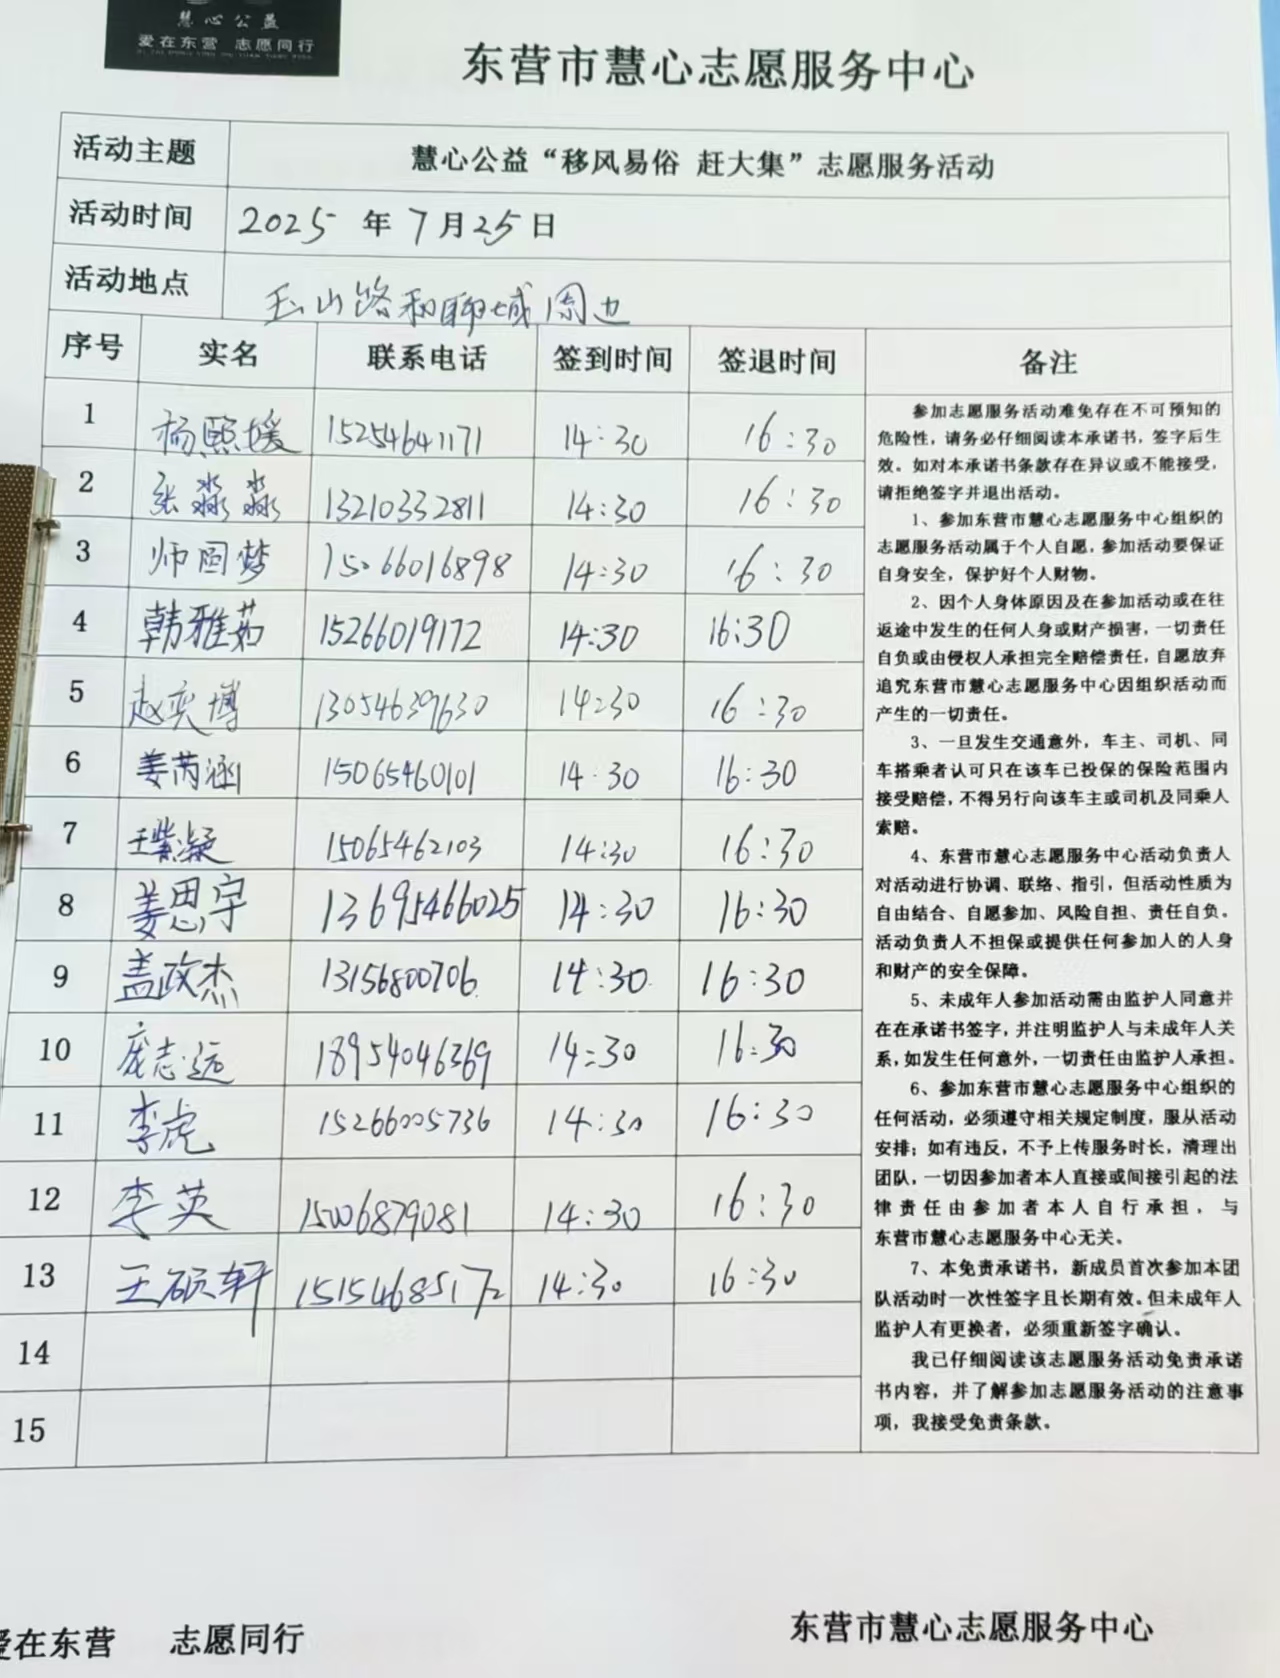 慧心公益
爱在东营 志愿同行
东营市慧心志愿服务中心
活动主题 慧心公益“移风易俗 赶大集”志愿服务活动
活动时间 2025 年 7 月 25 日
活动地点 玉山路和聊城周边
序号 实名 联系电话 签到时间 签退时间 备注
1 杨熙媛 15254641171 14:30 16:30
2 张淼淼 13210332811 14:30 16:30
3 师圆梦 15066016898 14:30 16:30
4 韩雅茹 15266019172 14:30 16:30
5 赵奕博 13054639630 14:30 16:30
6 姜芮涵 15065460101 14:30 16:30
7 王紫凝 15065462103 14:30 16:30
8 姜思宇 13695466025 14:30 16:30
9 盖政杰 13156800706 14:30 16:30
10 庞志远 18954046369 14:30 16:30
11 李虎 15266005736 14:30 16:30
12 李英 15006879081 14:30 16:30
13 王硕轩 15154685172 14:30 16:30
14
15
参加志愿服务活动难免存在不可预知的
危险性，请务必仔细阅读本承诺书，签字后生
效。如对本承诺书条款存在异议或不能接受，
请拒绝签字并退出活动。
1、参加东营市慧心志愿服务中心组织的
志愿服务活动属于个人自愿，参加活动要保证
自身安全，保护好个人财物。
2、因个人身体原因及在参加活动或在往
返途中发生的任何人身或财产损害，一切责任
自负或由侵权人承担完全赔偿责任，自愿放弃
追究东营市慧心志愿服务中心因组织活动而
产生的一切责任。
3、一旦发生交通意外，车主、司机、同
车搭乘者认可只在该车已投保的保险范围内
接受赔偿，不得另行向该车主或司机及同乘人
索赔。
4、东营市慧心志愿服务中心活动负责人
对活动进行协调、联络、指引，但活动性质为
自由结合、自愿参加、风险自担、责任自负。
活动负责人不担保或提供任何参加人的人身
和财产的安全保障。
5、未成年人参加活动需由监护人同意并
在在承诺书签字，并注明监护人与未成年人关
系，如发生任何意外，一切责任由监护人承担。
6、参加东营市慧心志愿服务中心组织的
任何活动，必须遵守相关规定制度，服从活动
安排；如有违反，不予上传服务时长，清理出
团队，一切因参加者本人直接或间接引起的法
律责任由参加者本人自行承担，与
东营市慧心志愿服务中心无关。
7、本免责承诺书，新成员首次参加本团
队活动时一次性签字且长期有效。但未成年人
监护人有更换者，必须重新签字确认。
我已仔细阅读该志愿服务活动免责承诺
书内容，并了解参加志愿服务活动的注意事
项，我接受免责条款。
爱在东营 志愿同行
东营市慧心志愿服务中心